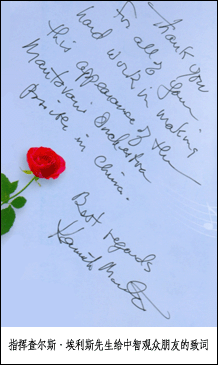 Thank you
for all of your
hard work in making
this appearance of the
Mantovani Orchestra
in China.
Best regards
指挥查尔斯·埃利斯先生给中智观众朋友的致词